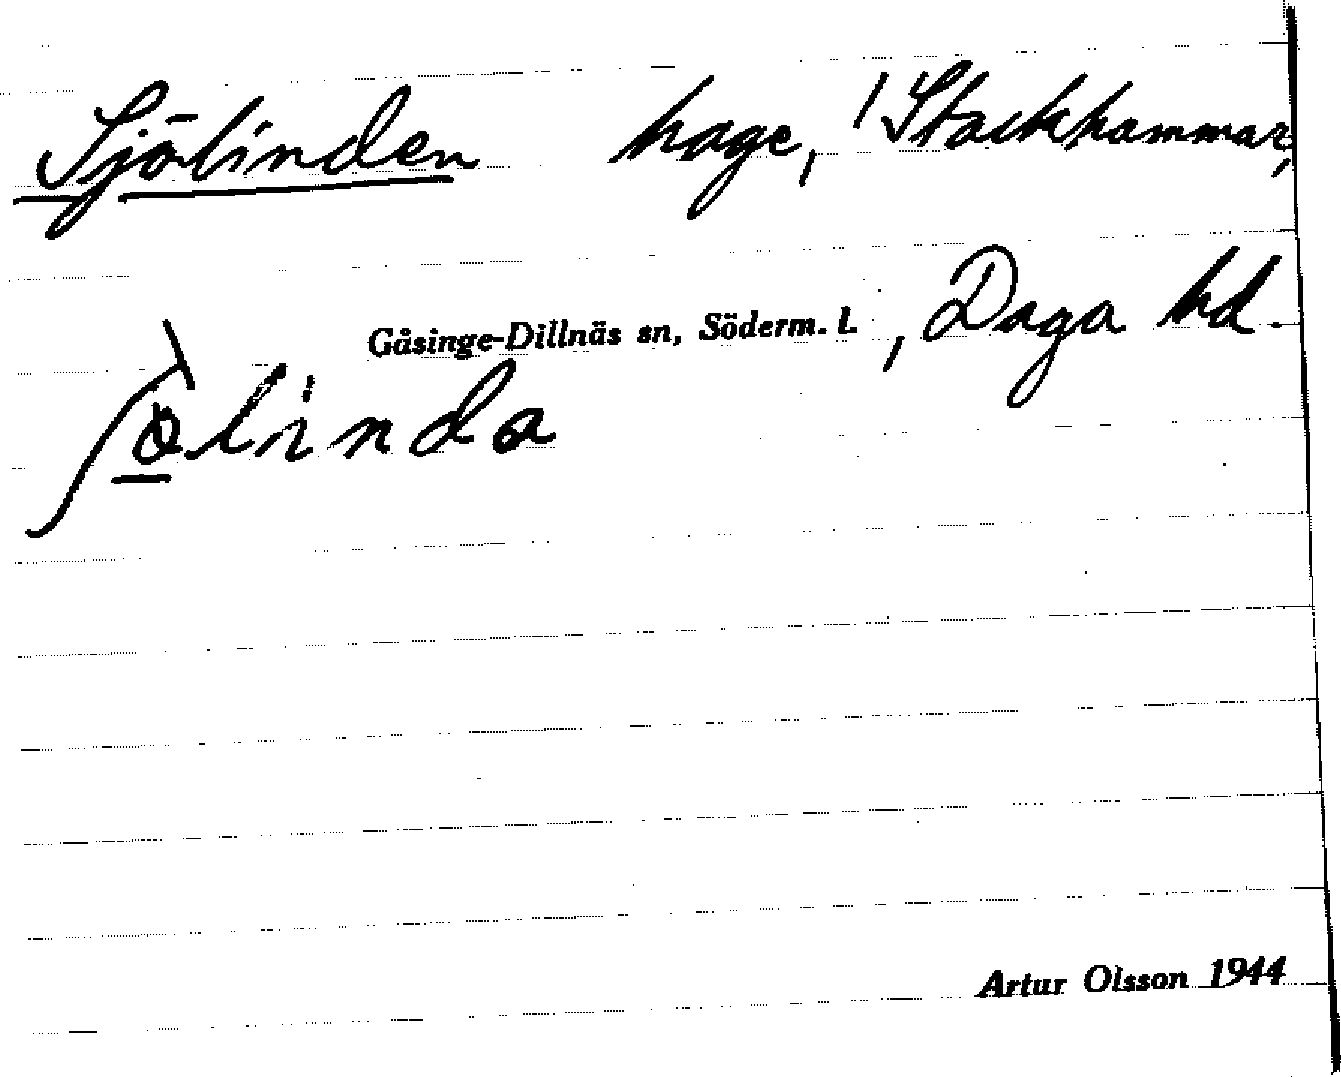 Sjölinden hage, / Stackhammar,
Gåsinge-Dillnäs sn, Söderm. l. , Daga hd.
ʃö̀linda
Artur Olsson 1944